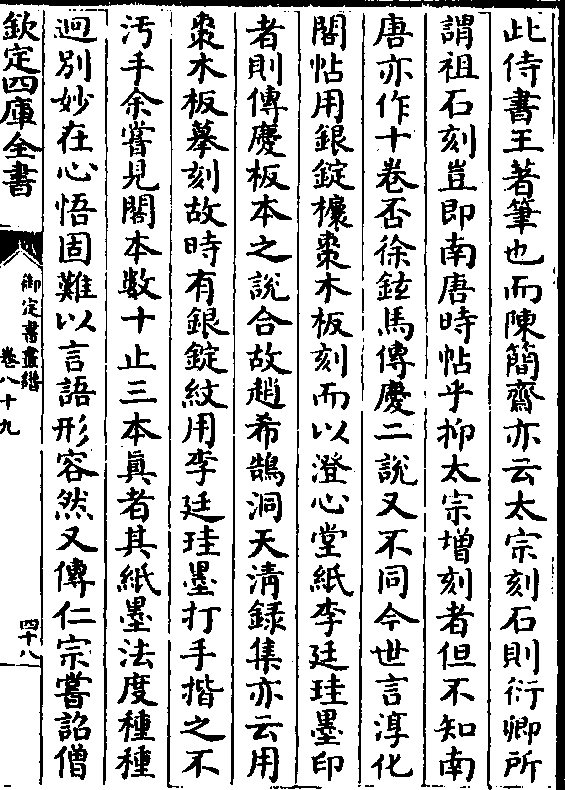 此侍書王著筆也而陳簡齋亦云太宗刻石則衍卿所
謂祖石刻豈即南唐時帖乎抑太宗增刻者但不知南
唐亦作十卷否徐鉉馬傳慶二說又不同今世言淳化
閣帖用銀錠欀棗木板刻而以澄心堂紙李廷珪墨印
者則傳慶板本之說合故趙希鵠洞天清録集亦云用
棗木板摹刻故時有銀錠紋用李廷珪墨打手揩之不
汚手余嘗見閣本數十止三本真者其紙墨法度種種
迥別妙在心悟固難以言語形容然又傳仁宗嘗詔僧
欽定四庫全書
御定書畫譜
卷八十九
四十八